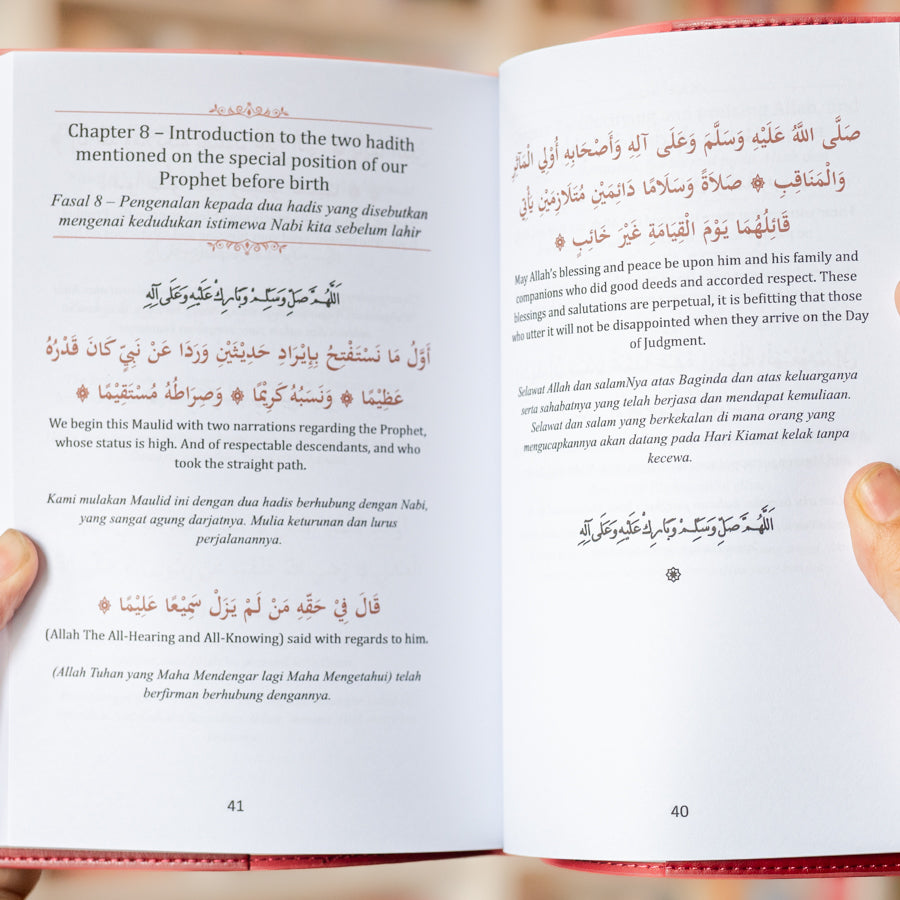 صَلَّى اللَّهُ عَلَيْهِ وَسَلَّمَ وَعَلَى آلِهِ وَأَصْحَابِهِ أُوْلِي الْمَآثِرِ
وَالْمَنَاقِبِ ۞ صَلَاةً وَسَلَامًا دَائِمَيْنِ مُتَلَازِمَيْنِ يَأْتِي
قَائِلُهُمَا يَوْمَ الْقِيَامَةِ غَيْرَ خَائِبٍ ۞
May Allah's blessing and peace be upon him and his family and
companions who did good deeds and accorded respect. These
blessings and salutations are perpetual, it is befitting that those
who utter it will not be disappointed when they arrive on the Day
of Judgment.
Selawat Allah dan salamNya atas Baginda dan atas keluarganya
serta sahabatnya yang telah berjasa dan mendapat kemuliaan.
Selawat dan salam yang berkekalan di mana orang yang
mengucapkannya akan datang pada Hari Kiamat kelak tanpa
kecewa.
اَللَّهُمَّ صَلِّ وَسَلِّمْ وَبَارِكْ عَلَيْهِ وَعَلَى آلِهِ
40
Chapter 8 – Introduction to the two hadith
mentioned on the special position of our
Prophet before birth
Fasal 8 – Pengenalan kepada dua hadis yang disebutkan
mengenai kedudukan istimewa Nabi kita sebelum lahir
اَللَّهُمَّ صَلِّ وَسَلِّمْ وَبَارِكْ عَلَيْهِ وَعَلَى آلِهِ
أَوَّلُ مَا نَسْتَفْتِحُ بِإِيْرَادِ حَدِيْثَيْنِ وَرَدَا عَنْ نَبِيٍّ كَانَ قَدْرُهُ
عَظِيْمًا ۞ وَنَسَبُهُ كَرِيْمًا ۞ وَصِرَاطُهُ مُسْتَقِيْمًا ۞
We begin this Maulid with two narrations regarding the Prophet,
whose status is high. And of respectable descendants, and who
took the straight path.
Kami mulakan Maulid ini dengan dua hadis berhubung dengan Nabi,
yang sangat agung darjatnya. Mulia keturunan dan lurus
perjalanannya.
قَالَ فِيْ حَقِّهِ مَنْ لَمْ يَزَلْ سَمِيْعًا عَلِيْمًا ۞
(Allah The All-Hearing and All-Knowing) said with regards to him.
(Allah Tuhan yang Maha Mendengar lagi Maha Mengetahui) telah
berfirman berhubung dengannya.
41